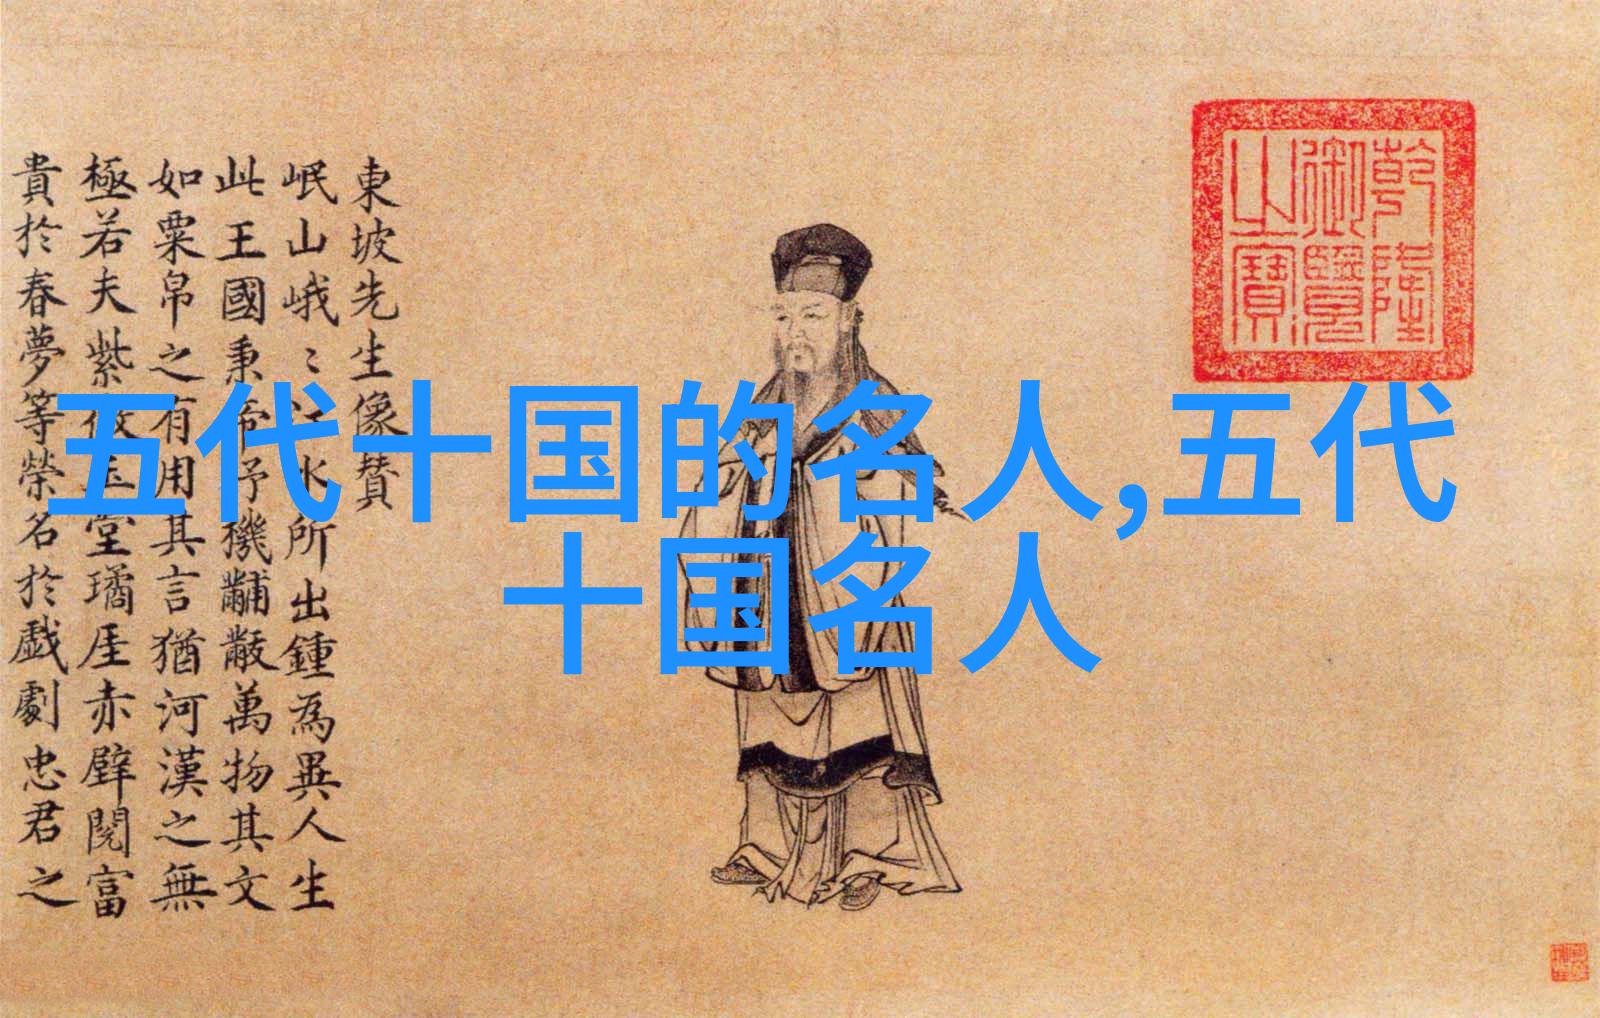 東坡先生像贊
岷山峨〻江水所出鍾為異人生
此王國秉帝杼機黼黻萬物其文
如粟帛之有用其言猶河漢之無
極若夫紫微玉堂璚厓赤壁閱富
貴於春夢等榮名於戲劇忠君之
乾隆
御覽
之寶
五代十国的名人,五代
十国名人